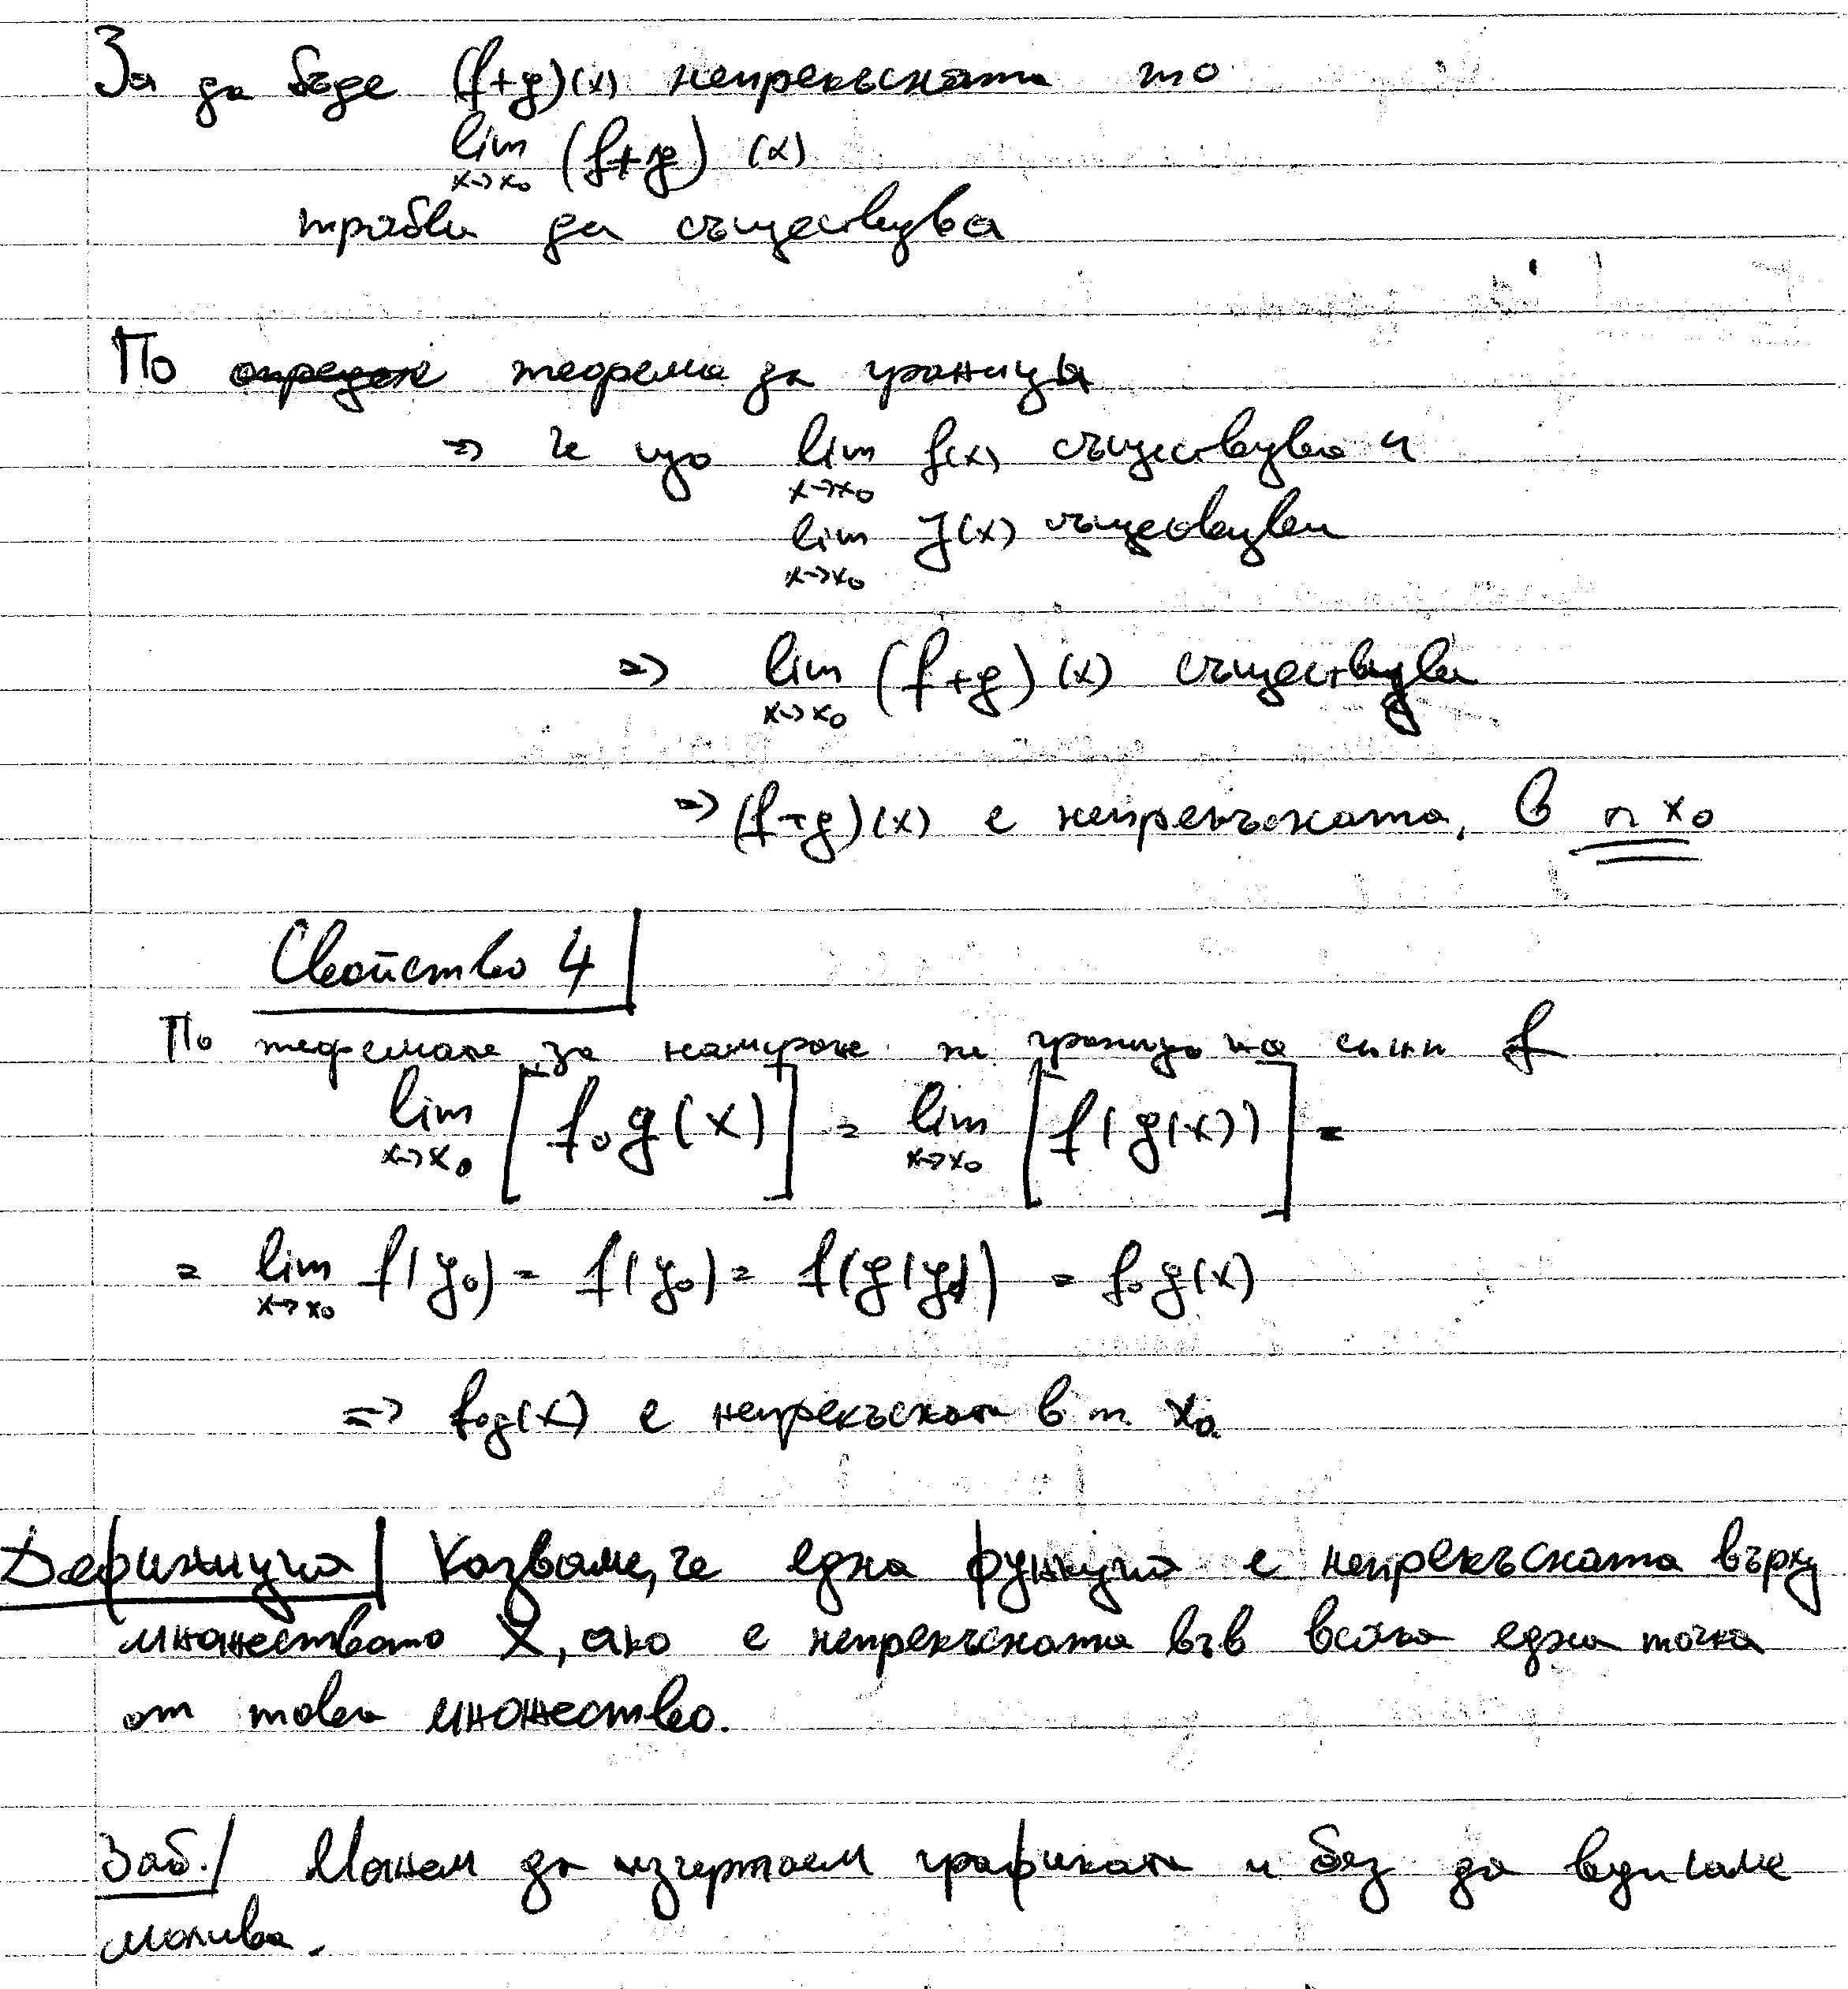 За да бъде (f+g)(x) непрекъсната то
lim x→x₀ (f+g)(x)
трябва да съществува
По теорема за граници
⇒ че що lim x→x₀ f(x) съществува и
lim x→x₀ g(x) съществува
⇒ lim x→x₀ (f+g)(x) съществува
⇒ (f+g)(x) е непрекъсната, в т x₀
Свойство 4
По теоремата за намиране на граница на f
lim x→x₀ [f∘g(x)] = lim x→x₀ [f(g(x))] =
= lim x→x₀ f(y₀) = f(y₀) = f(g(y₀)) = f∘g(x)
⇒ f∘g(x) е непрекъсната в т x₀.
Дефиниция Казваме, че една функция е непрекъсната върху
множеството X, ако е непрекъсната във всяка една точка
от това множество.
Заб./ Можем да изчертаем графиката и без да вдигаме
молива.